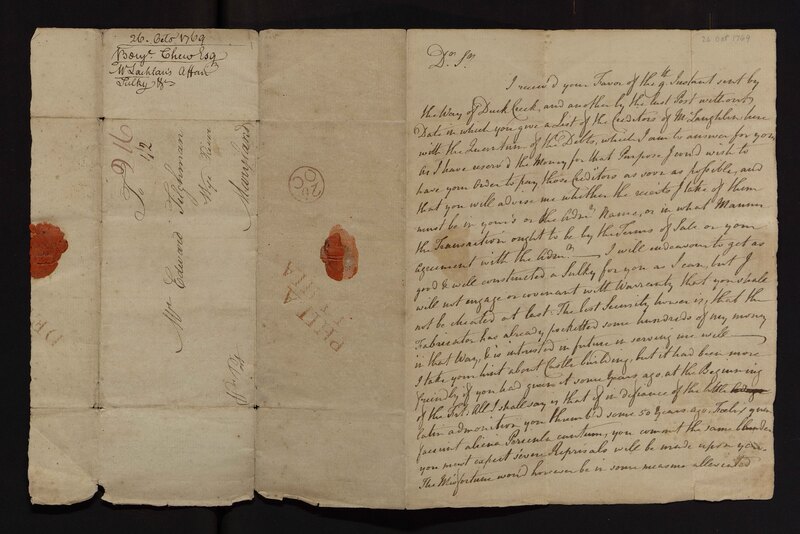 26. Octo 1769
Benjn. Chew Esqr
McLachlan's Affair
Sulky &c
To
Mr. Edward Tilghman
Wye River
Maryland
26
OC
PHILA
26 Oct 1769
Dr. Sr.
I receiv'd your Favor of the 9th. Instant sent by
the Way of Duck Creek, and another by the last Post without
Date in which you give a List of the Creditors of McLaughlin, here
with the Quantum of the Debts, which I am to answer for you
As I have reserv'd the Money for that Purpose I could wish to
have your Order to pay those Creditors as soon as possible, and
that you will advise me whether the receits I take of them
must be in your's or the Admrs. Name, or in what Manner
the Transaction ought to be by the Terms of Sale or your
agreement with the Admr. I will endeavour to get as
good & well constructed a Sulky for you as I can, but I
will not engage or covenant with Warranty that you shall
not be cheated at last. The best Security however is, that the
Fabricator has already pocketted some hundreds of my money
in that Way, & is intrusted in future in serving me well
I take your hint about Castle building, but it had been more
friendly if you had given it some Years ago at the Beginning
of the Fit. All I shall say is that if in defiance of the little
Latin admonition you thumb'd some 50 Years ago, Foelix quem
faciunt aliena Pericula cautum, you commit the same blunder
you must expect severe Reprisals will be made upon you
The Misfortune would however be in some measure alleviated